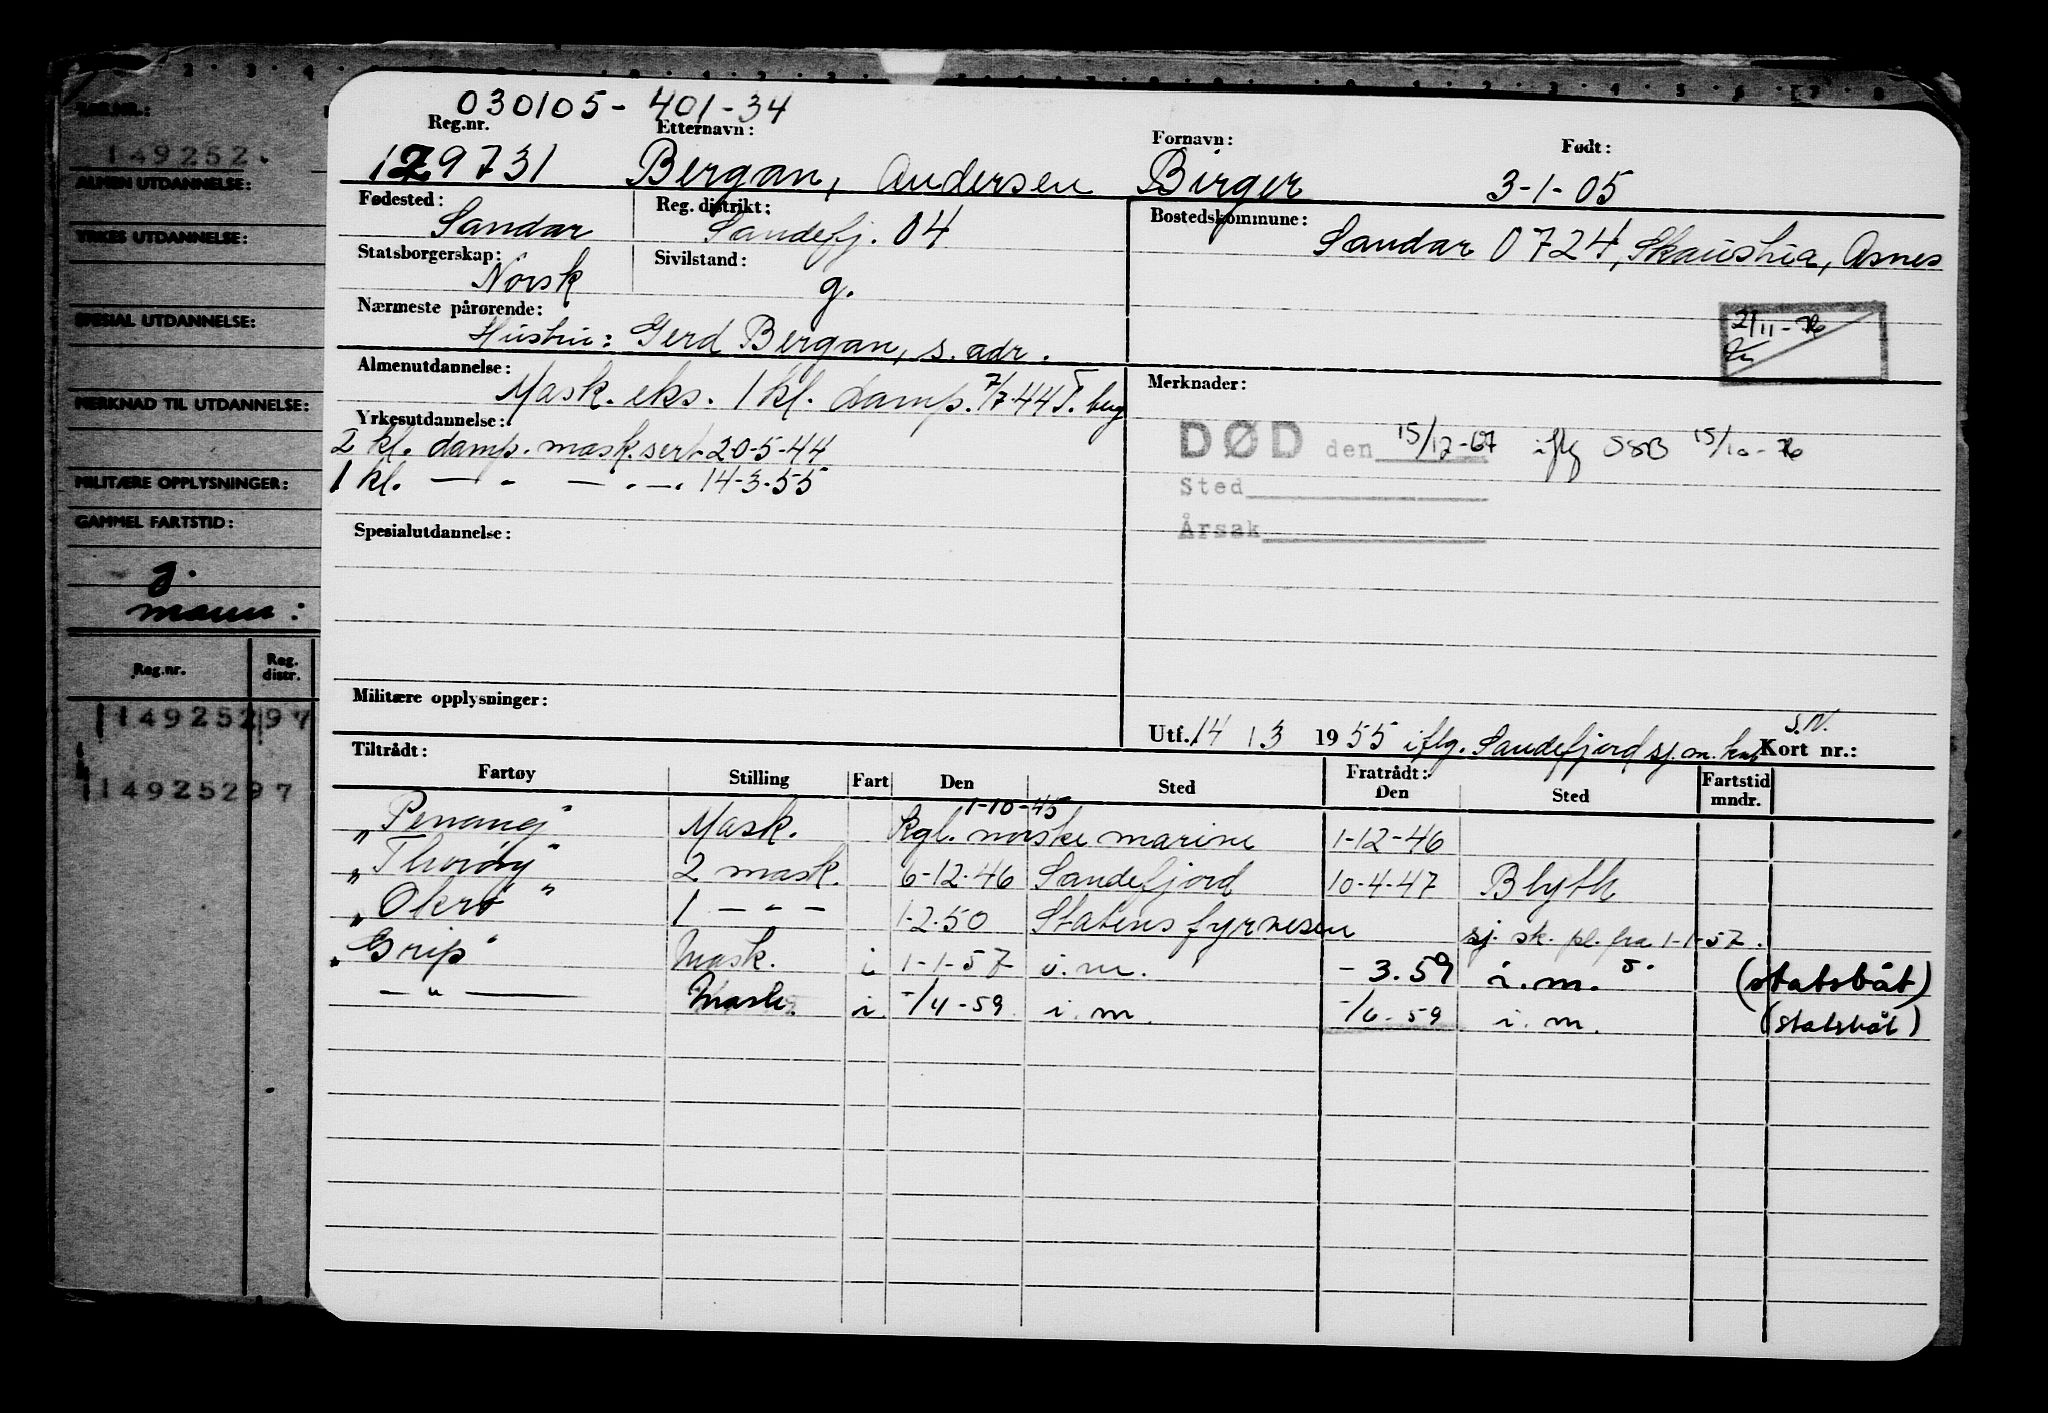 030105-401-34
Reg.nr. Etternavn: Fornavn: Født:
129731 Bergan, Andersen Birger 3-1-05
Fødested: Sandar Reg. distrikt: Sandefj. 04 Bostedskommune: Sandar 0724, Asnes
Statsborgerskap: Norsk Sivilstand: g.
Nærmeste pårørende: Hustru: Gerd Bergan, s. adr.
21/11-76
Almenutdannelse: Mask. eks. 1 kl. damp. 7/7-44 T.berg
Merknader:
Yrkesutdannelse:
2 kl. damp. mask.sert. 20-5-44
DØD den 15/12-67 iflg SSB 15/10-76
1 kl. — " — " — 14-3-55
Sted
Årsak
Spesialutdannelse:
Militære opplysninger:
Utf. 14 / 3 1955 iflg. Sandefjord sj.m.knt S.N. Kort nr.:
Tiltrådt: Fratrådt:
Fartøy Stilling Fart Den Sted Den Sted Fartstid mndr.
"Penang" Mask. 1-10-45 Kgl. norske marine 1-12-46
"Thorøy" 2 mask. 6-12-46 Sandefjord 10-4-47 Blyth
"Okrø" 1 — " — 1-2-50 Statens fyrvesen sj. sk. pl. fra 1-1-57.
"Grip" Mask. i 1-1-57 i.m. - 3.59 i.m. (statsbåt)
— " — Mask. i. -/4-59 i.m. -/6-59 i.m. (statsbåt)
REG.NR.:
149252.
ALMEN UTDANNELSE:
YRKES UTDANNELSE:
SPESIAL UTDANNELSE:
MERKNAD TIL UTDANNELSE:
MILITÆRE OPPLYSNINGER:
GAMMEL FARTSTID:
g.
mann:
Reg.nr. Reg. distr.
149252 97
149252 97